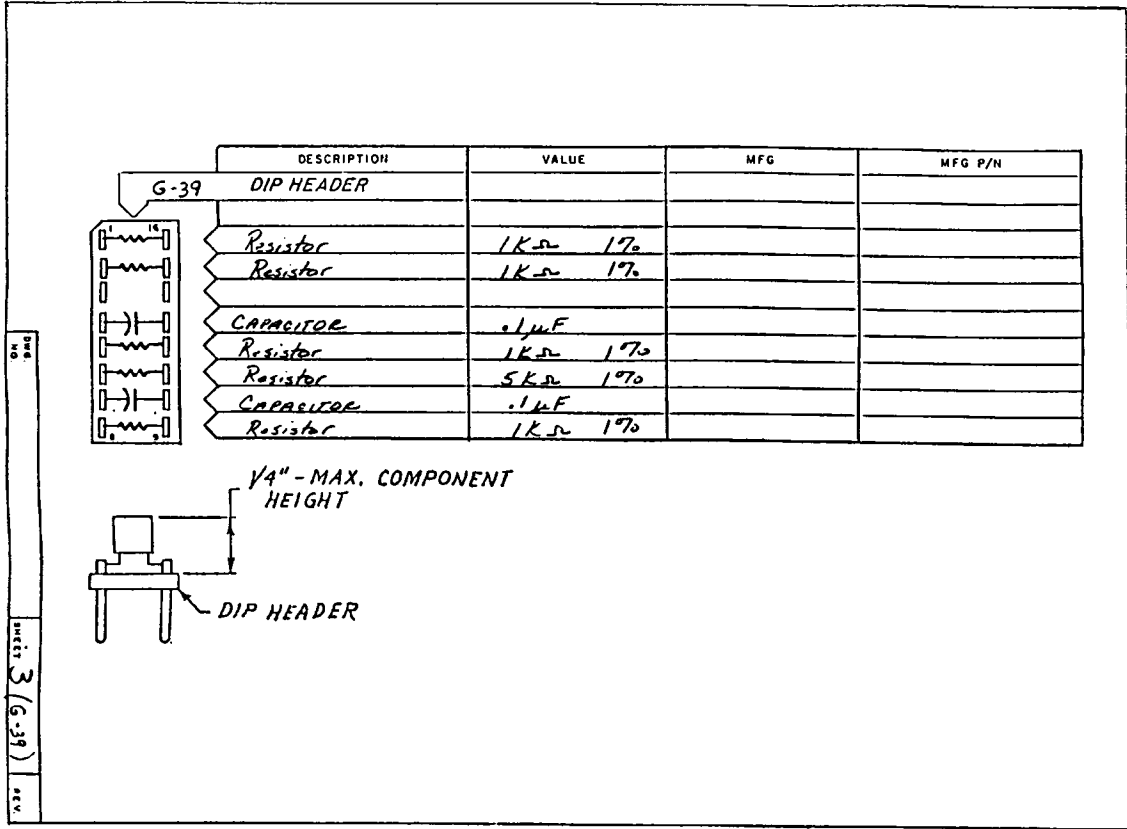 DESCRIPTION VALUE MFG MFG P/N
G-39 DIP HEADER
1 16
Resistor 1KΩ 1%
Resistor 1KΩ 1%
CAPACITOR .1µF
Resistor 1KΩ 1%
Resistor 5KΩ 1%
CAPACITOR .1µF
Resistor 1KΩ 1%
8 9
1/4" - MAX. COMPONENT
HEIGHT
DIP HEADER
DWG.
NO.
SHEET 3 (G-39) REV.